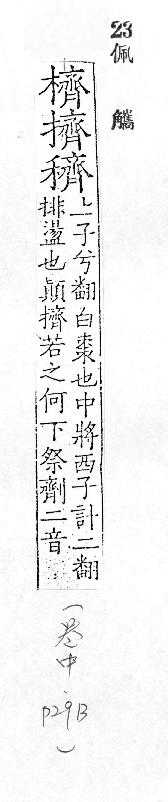 23
佩觿
櫅擠穧
上子兮翻白棗也中將西子計二翻
排盪也顛擠若之何下祭劑二音
(卷中
P29B
)